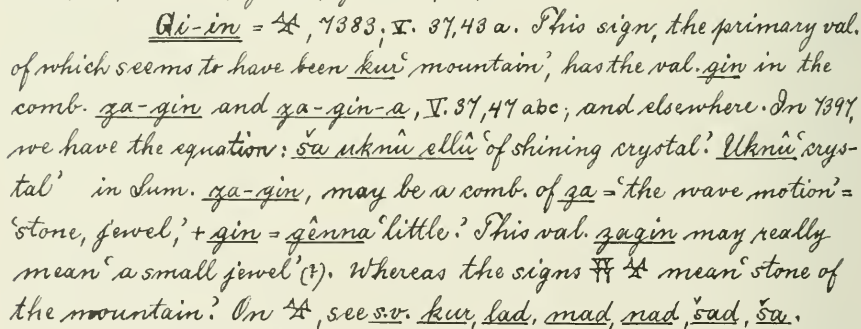 Gi-in = 𒆳, 7383; V. 37,43 a. This sign, the primary val.
of which seems to have been kur 'mountain', has the val. gin in the
comb. za-gin and za-gin-a, V. 37,47 abc; and elsewhere. In 7397,
we have the equation: ša uknû ellû 'of shining crystal.' Uknû 'crys-
tal' in Sum. za-gin, may be a comb. of za = 'the wave motion' =
'stone, jewel,' + gin = gênna 'little.' This val. zagin may really
mean 'a small jewel' (?). Whereas the signs 𒍝 𒆳 mean 'stone of
the mountain.' On 𒆳, see s.v. kur, lad, mad, nad, šad, ša.